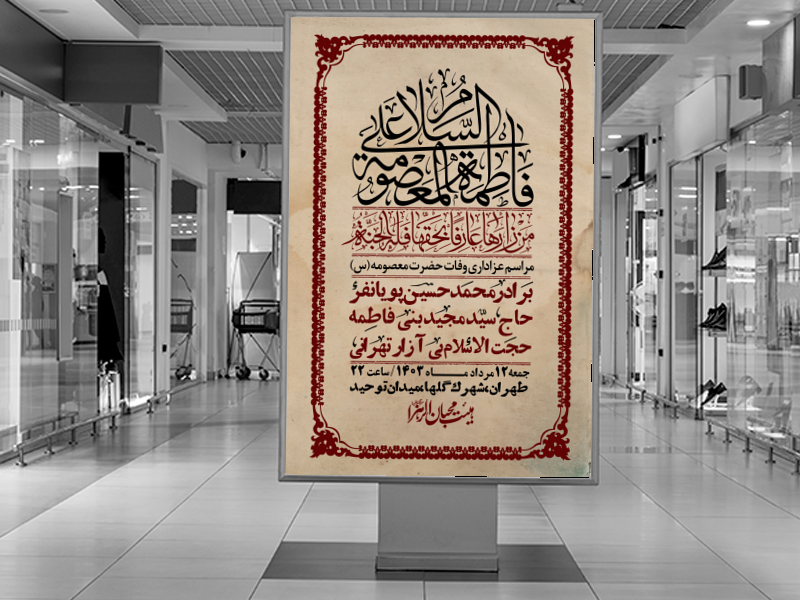 السَّلامُ عَلى
فاطِمَةَ المَعصُومَة
مَن زارَها عارِفاً بِحَقِّها فَلَهُ الجَنَّة
مراسم عزاداری وفات حضرت معصومه (س)
برادر محمدحسین پویانفر
حاج سیّد مجید بنی فاطمه
حجت الاسلام بی آزار تهرانی
جمعه ۱۲ مرداد مـــاه ۱۴۰۳ / ساعت ۲۲
طهران، شهرک گلها، میدان توحید
هیئت محبان الزهرا